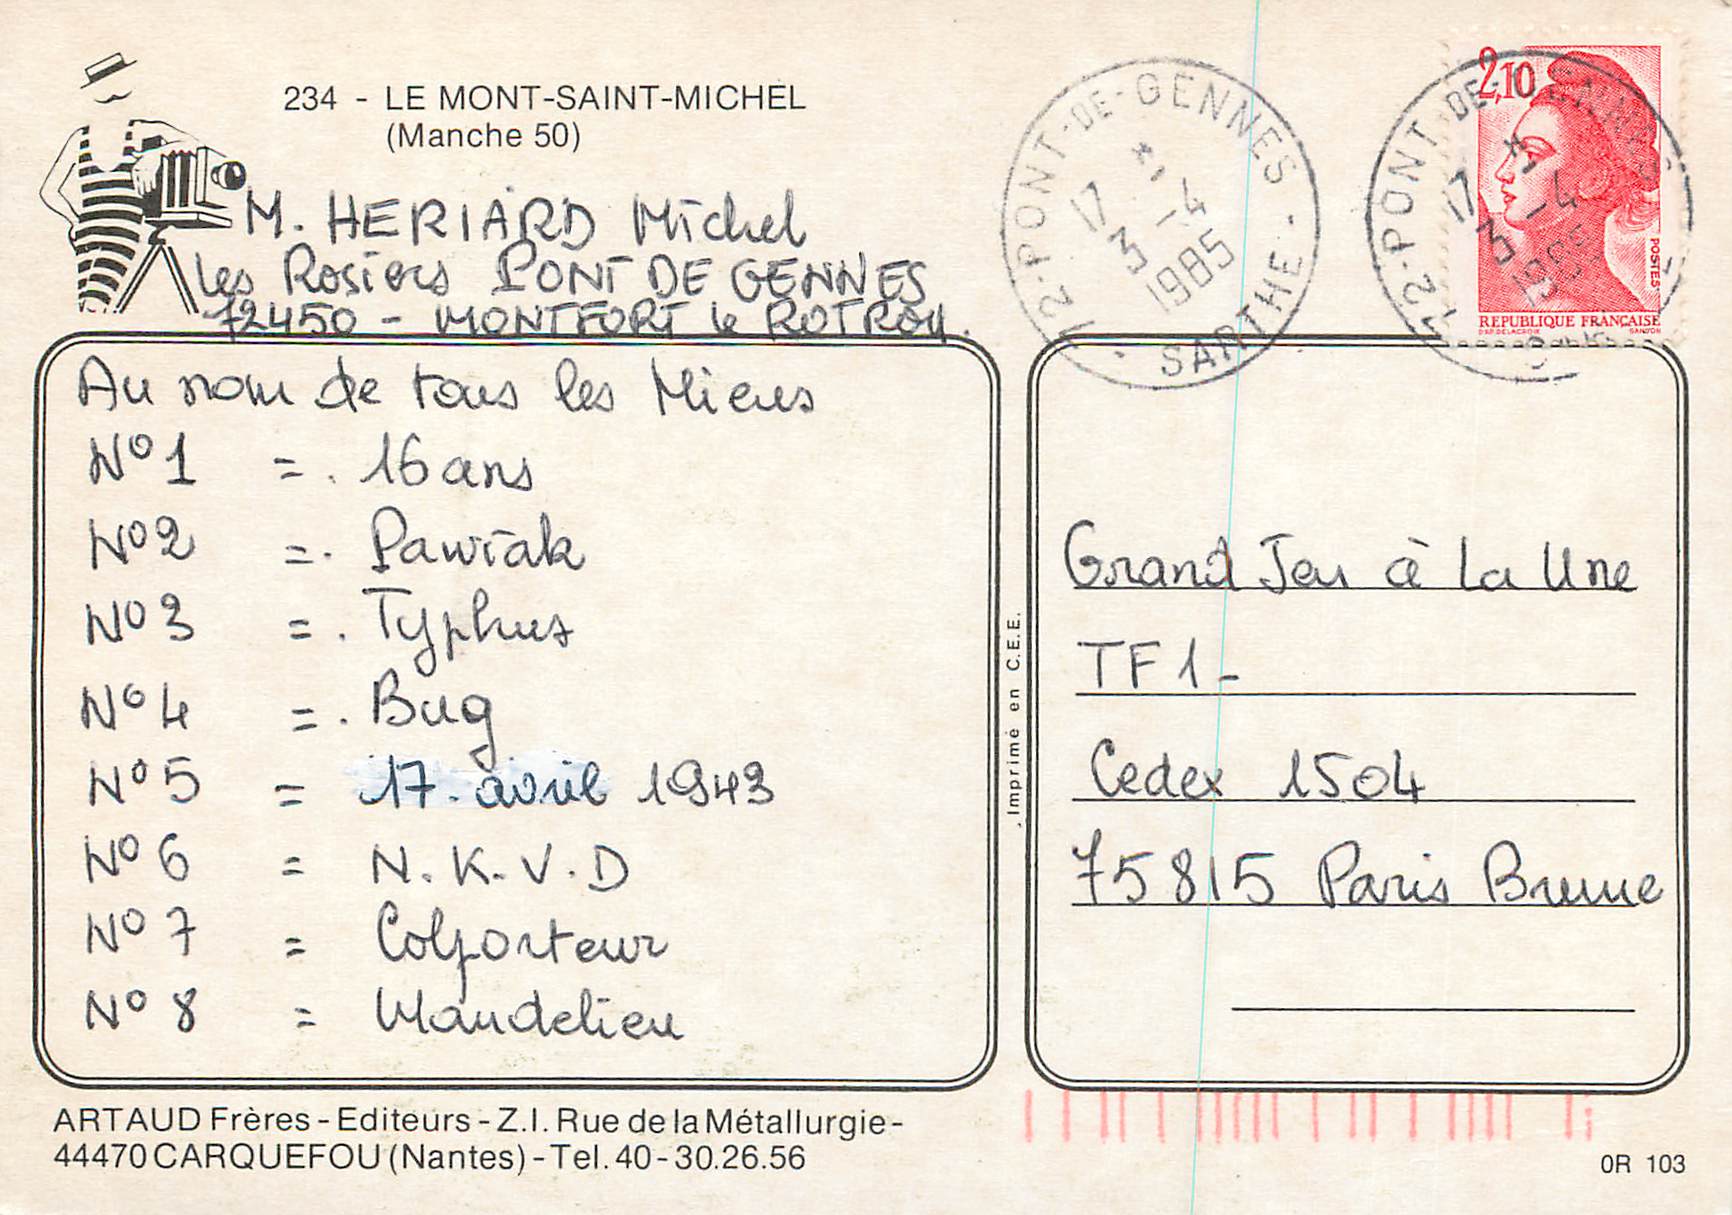 234 - LE MONT-SAINT-MICHEL
(Manche 50)
M. HERIARD Michel
Les Rosiers PONT DE GENNES
72450 - MONTFORT le ROTROU.
Au nom de tous les Miens
N°1 = . 16 ans
N°2 = . Pawiak
N°3 = . Typhus
N°4 = . Bug
N°5 = 17. avril 1943
N°6 = N.K.V.D
N°7 = Colporteur
N°8 = Mandelieu
ARTAUD Frères - Editeurs - Z.I. Rue de la Métallurgie -
44470 CARQUEFOU (Nantes) - Tel. 40-30.26.56
Imprimé en C.E.E.
72-PONT-DE-GENNES
17 * 
3 - 4
1985
- SARTHE -
72-PONT-DE-GENNES
17 *
3 - 4
1985
2,10
POSTES
REPUBLIQUE FRANÇAISE
D'AP. DELACROIX GANDON
Grand Jeu à La Une
TF1 -
Cedex 1504
75815 Paris Brune
OR 103